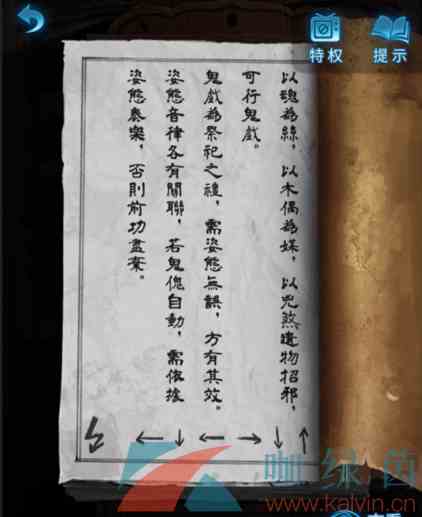 特权
提示
以魂為絲，以木偶為媒，以兇煞遺物招邪，
可行鬼戲。
鬼戲為祭祀之禮，需姿態無誤，方有其效。
姿態音律各有關聯，若鬼傀自動，需依據
姿態奏樂，否則前功盡棄。
↑↓→←↓←
咖绿茵
www.kalvin.cn